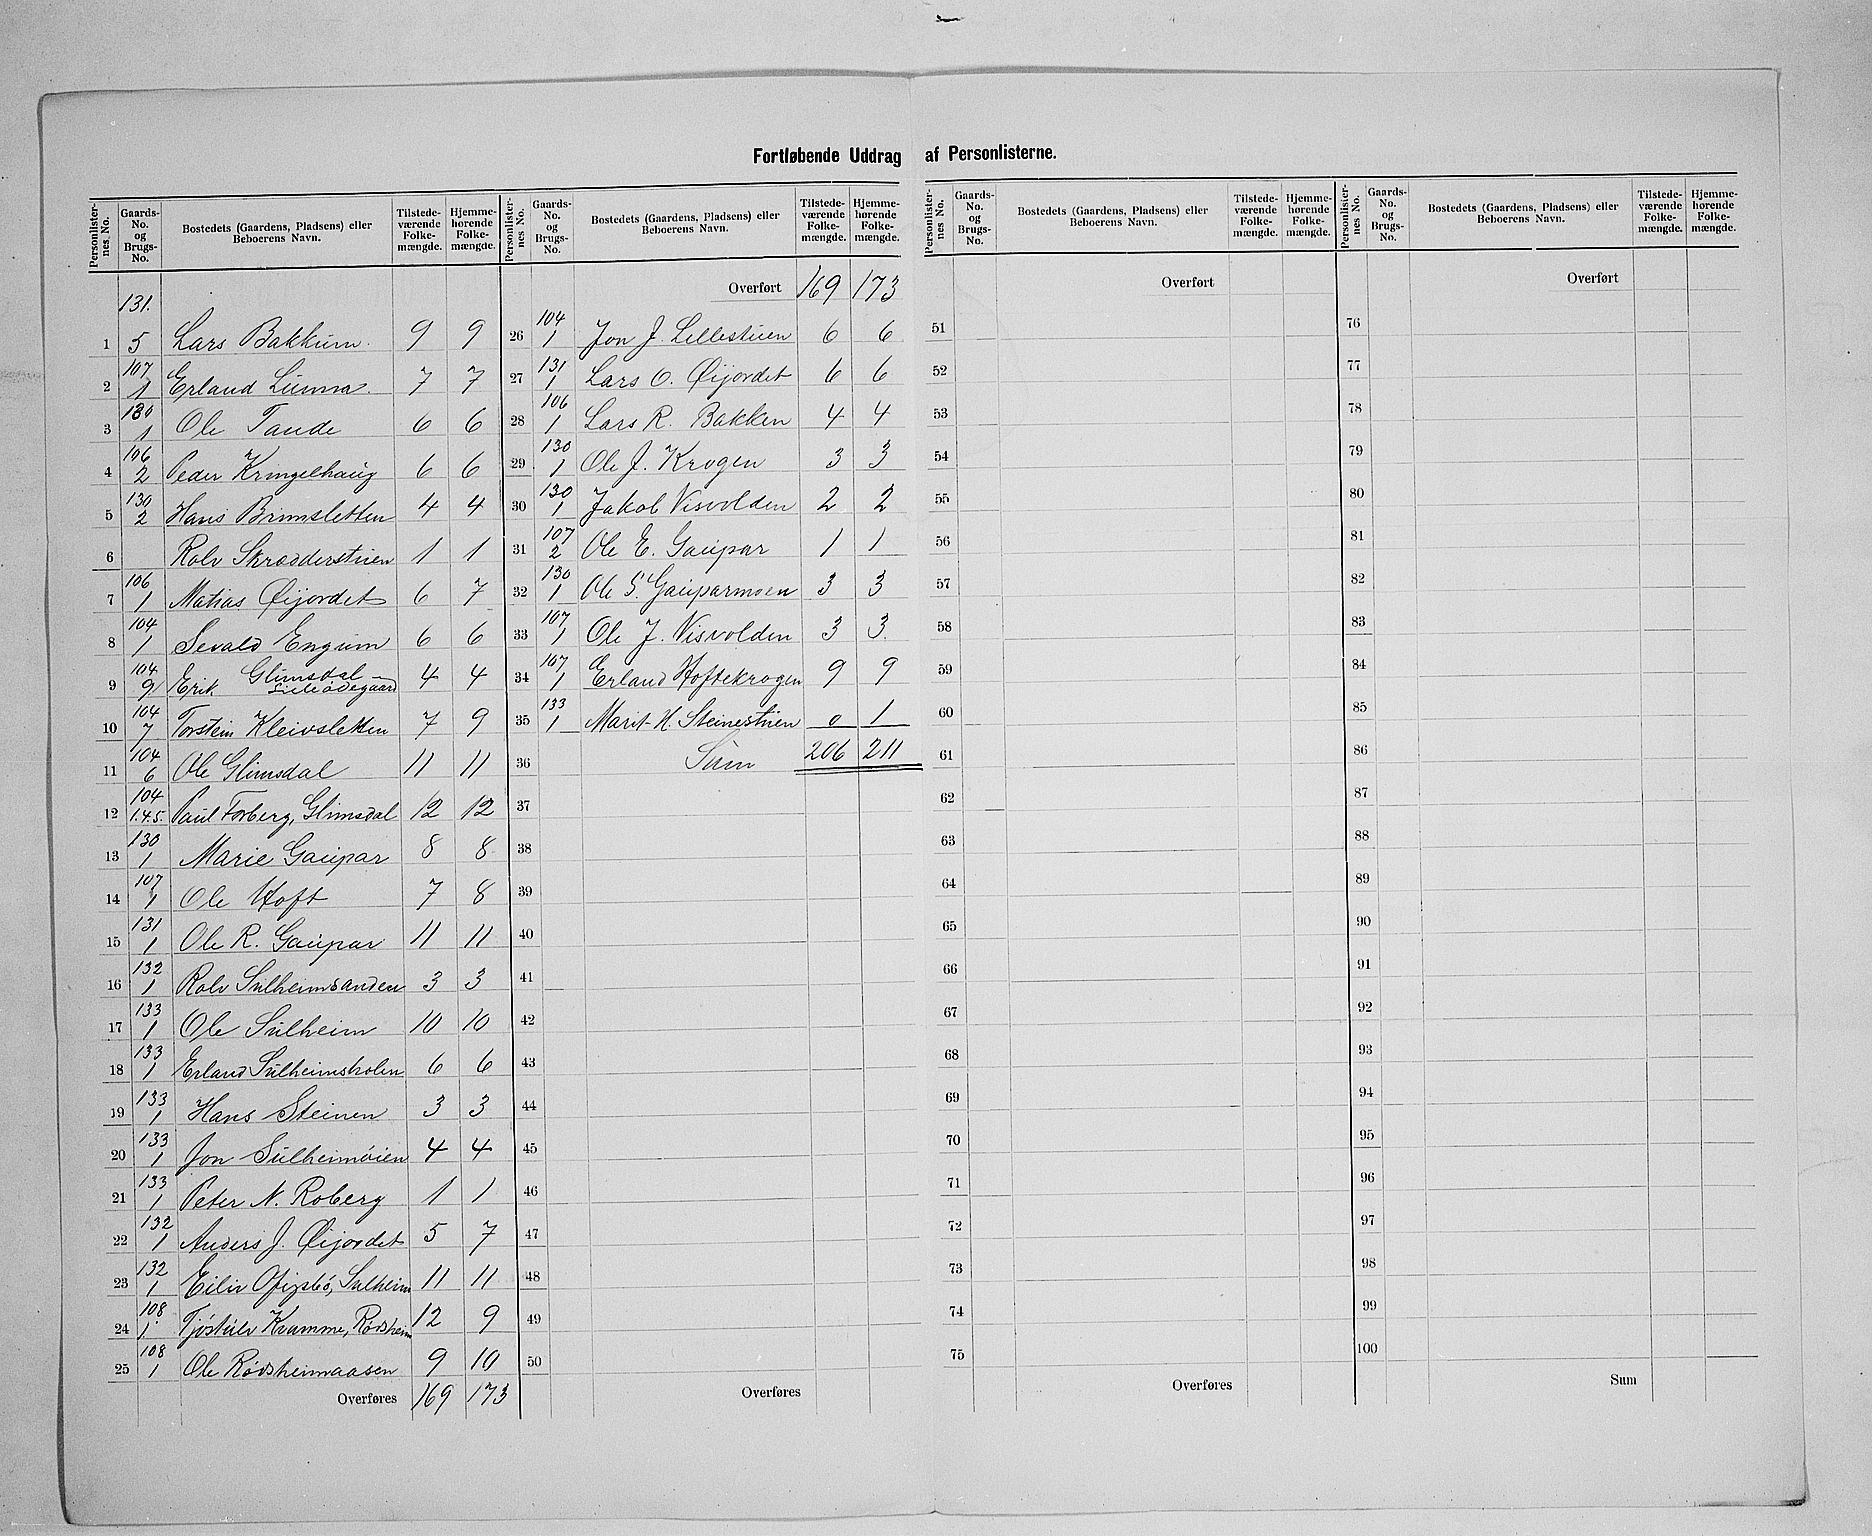 Fortløbende Uddrag af Personlisterne.
Personlister-nes No. | Gaards-No. og Brugs-No. | Bostedets (Gaardens, Pladsens) eller Beboerens Navn. | Tilstede-værende Folke-mængde. | Hjemme-hørende Folke-mængde.
131.
1 5 Lars Bakkum. 9 9
2 107/1 Erland Lunna. 7 7
3 130/1 Ole Taude 6 6
4 106/2 Peder Kringelhaug 6 6
5 130/2 Hans Brimsletten 4 4
6 Rolv Skrædderstuen 1 1
7 106/1 Matias Øijordet 6 7
8 104/1 Sevald Engum 6 6
9 104/9 Erik Glimsdal Lilleødegaard 4 4
10 104/7 Torstein Kleivsletten 7 9
11 104/6 Ole Glimsdal 11 11
12 104/1.4.5. Paul Forberg, Glimsdal 12 12
13 130/1 Marie Gaupar 8 8
14 107/1 Ole Hoft 7 8
15 131/1 Ole R. Gaupar 11 11
16 132/1 Rolv Sulheimsanden 3 3
17 133/1 Ole Sulheim 10 10
18 133/1 Erland Sulheimskolen 6 6
19 133/1 Hans Steinen 3 3
20 133/1 Jon Sulheimøien 4 4
21 133/1 Peter N. Roberg 1 1
22 132/1 Anders J. Øijordet 5 7
23 132/1 Eiliv Sulheim 11 11
24 108/1 Tjøstulv Kramme, Rødsheim 12 9
25 108/1 Ole Rødsheimaasen 9 10
Overføres 169 173
Personlister-nes No. | Gaards-No. og Brugs-No. | Bostedets (Gaardens, Pladsens) eller Beboerens Navn. | Tilstede-værende Folke-mængde. | Hjemme-hørende Folke-mængde.
Overført 169 173
26 104/1 Jon J. Lillestuen 6 6
27 131/1 Lars O. Øijordet 6 6
28 106/1 Lars R. Bakken 4 4
29 130/1 Ole J. Krogen 3 3
30 130/1 Jakob Visvolden 2 2
31 107/2 Ole E. Gaupar 1 1
32 130/1 Ole S. Gauparmoen 3 3
33 107/1 Ole J. Visvolden 3 3.
34 107/1 Erland Hoftekrogen 9 9
35 133/1 Marit H. Steinestuen 0 1
36 Sum 206 211
37
38
39
40
41
42
43
44
45
46
47
48
49
50
Overføres
Personlister-nes No. | Gaards-No. og Brugs-No. | Bostedets (Gaardens, Pladsens) eller Beboerens Navn. | Tilstede-værende Folke-mængde. | Hjemme-hørende Folke-mængde.
Overført
51
52
53
54
55
56
57
58
59
60
61
62
63
64
65
66
67
68
69
70
71
72
73
74
75
Overføres
Personlister-nes No. | Gaards-No. og Brugs-No. | Bostedets (Gaardens, Pladsens) eller Beboerens Navn. | Tilstede-værende Folke-mængde. | Hjemme-hørende Folke-mængde.
Overført
76
77
78
79
80
81
82
83
84
85
86
87
88
89
90
91
92
93
94
95
96
97
98
99
100
Sum